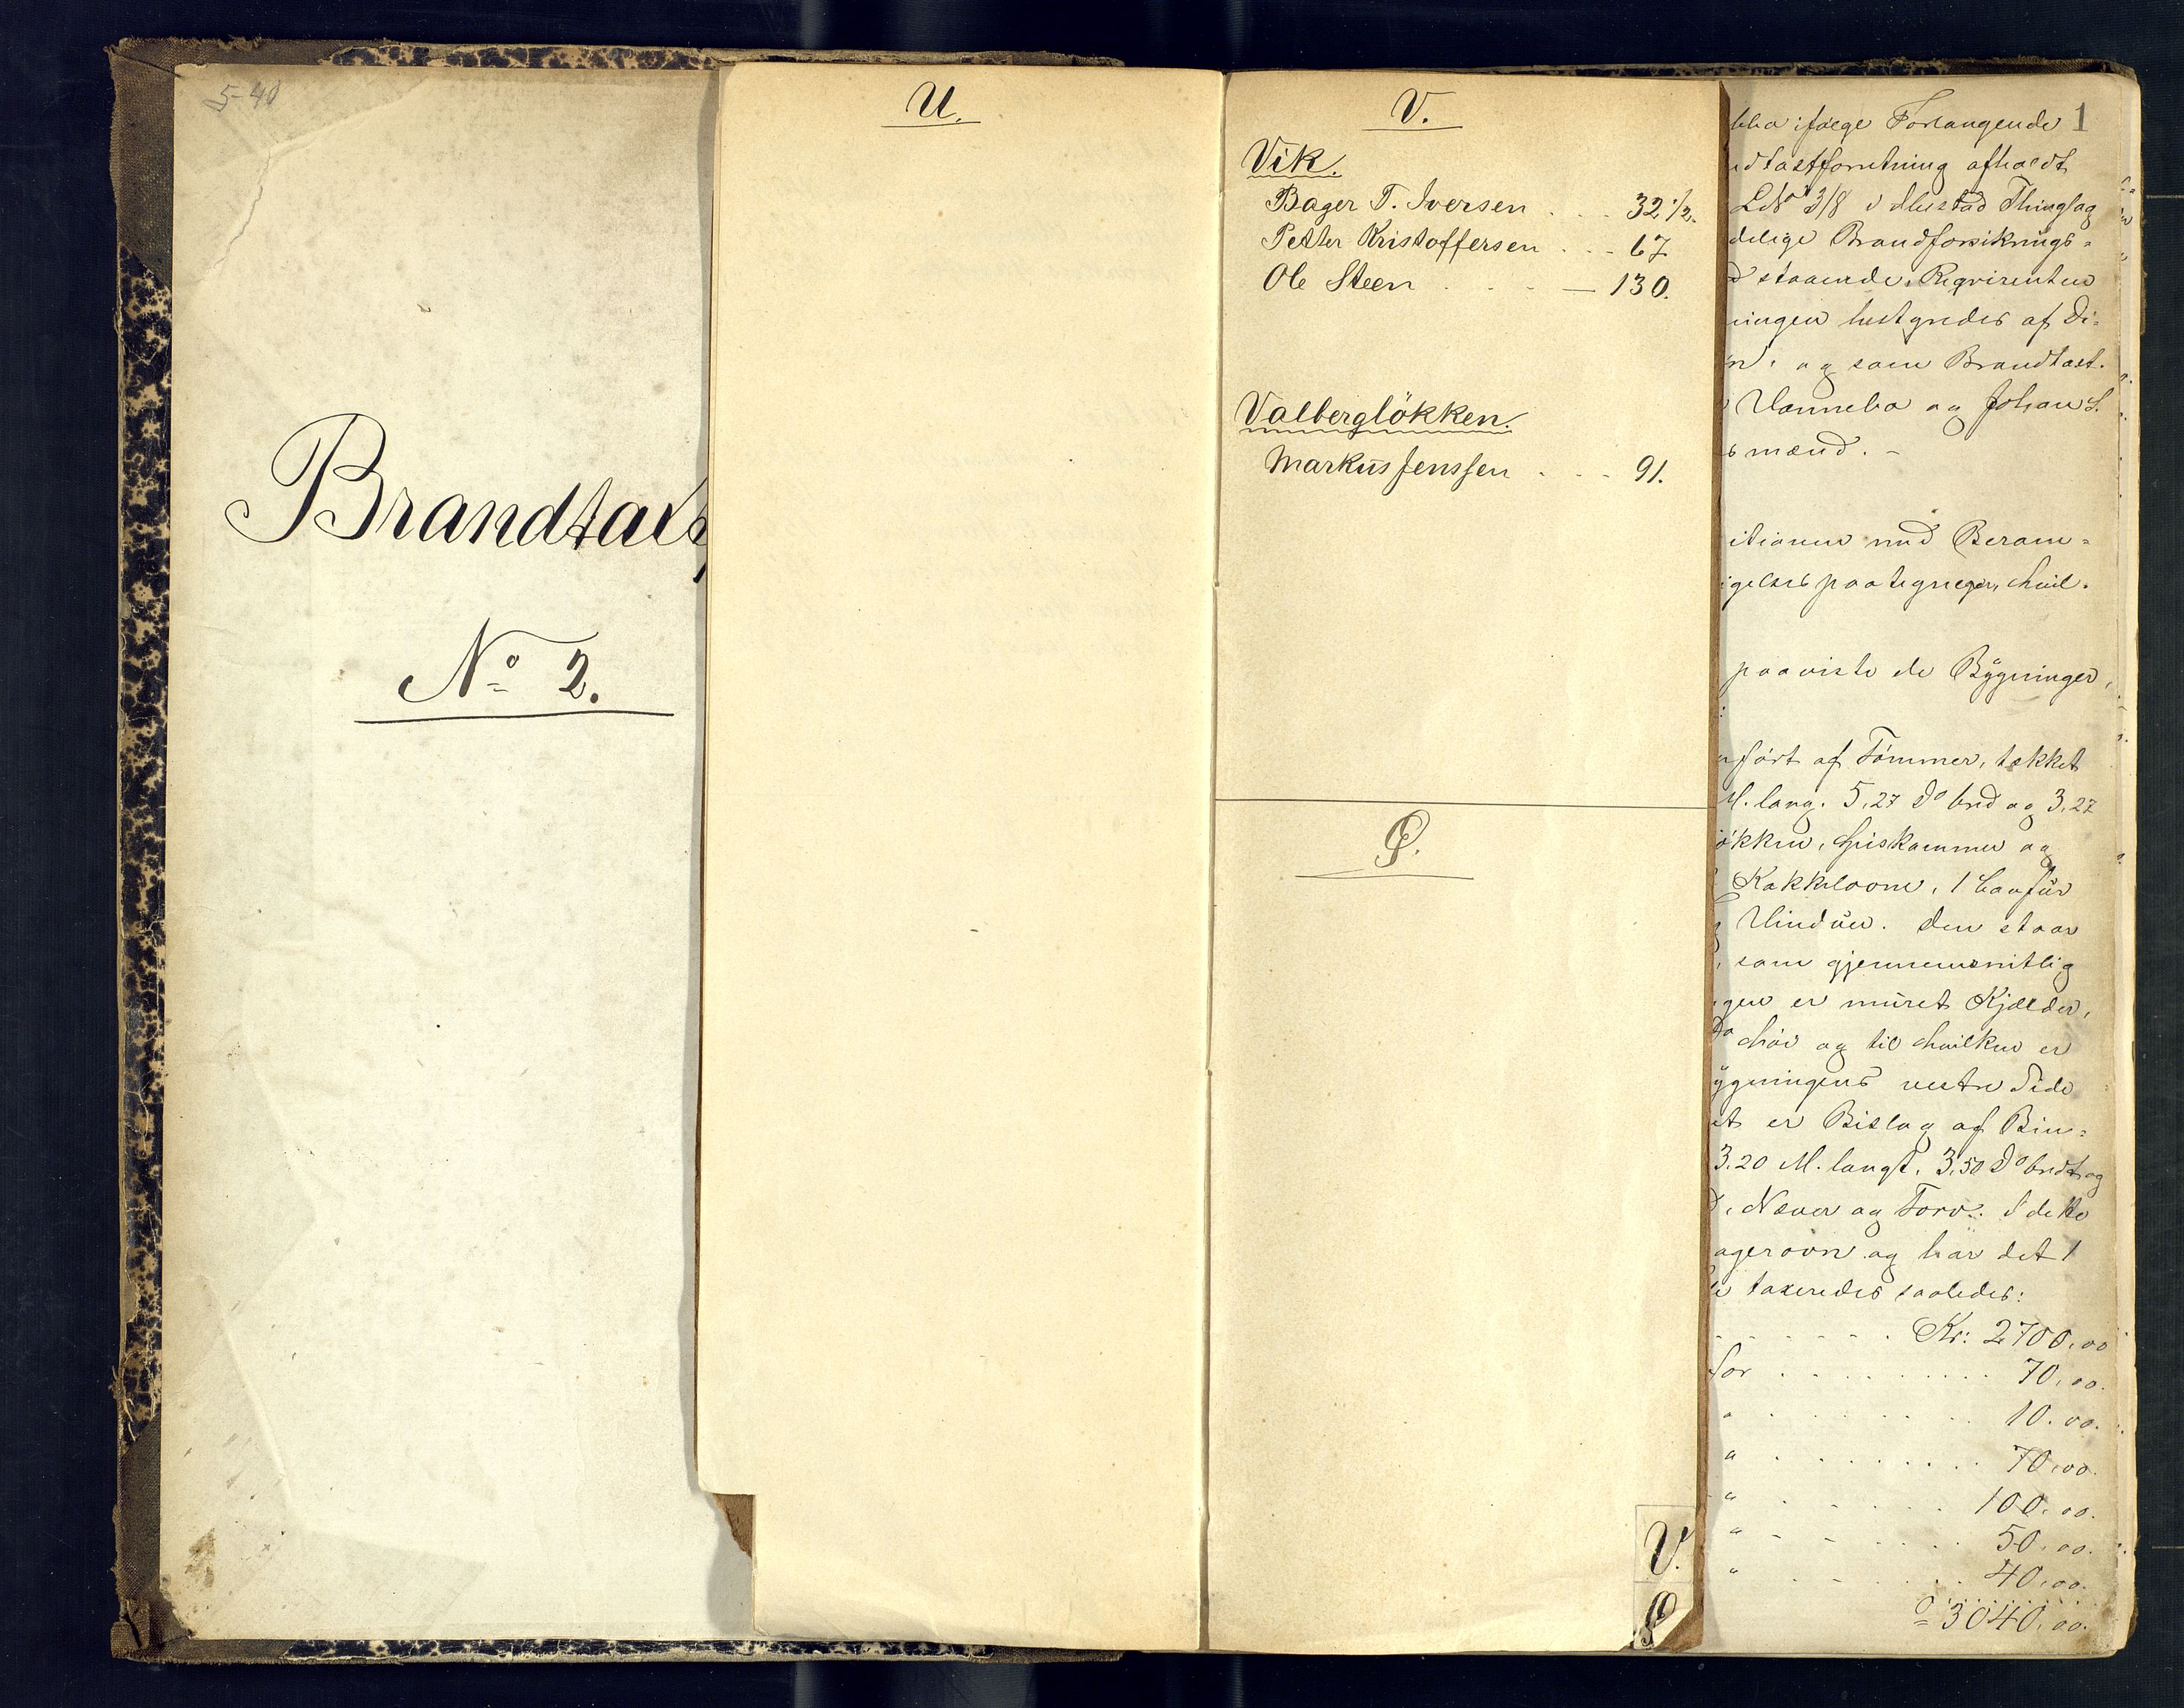 5-40
Brandtaxt
No 2.
U.
V.
Vik.
Bager T. Iversen . . . 32 1/2.
Petter Kristoffersen . . - 67
Ole Steen . . . — 130.
Valberglökken.
Markus Jenssen . . . 91.
Ø.
V.
Ø
1
ifølge Forlangende
forretning afholdt
LNo 3/8 i Thinglag
delige Brandforsikrings=
staaende. Reqvirenten
ningen af Di=
og som Brandtaxt.
og Johan L.
smænd. -
itionen med Beram=
gelses paategninger, hvil.
paaviste de Bygninger,
ført af Tömmer, tækket
M. lang. 5,27 Do bred og 3,27
økken, Spiskammer og
Kakkelovne, 1
Vinduer. Den staar
, som gjennemsnitlig
gen er muret Kjælder,
Do høi og til hvilken er
ygningens vestre Side
et er Bislag af Bin=
3.20 M. langt, 3,50 Do bredt og
, Næver og Torv. I dette
agerovn og har det 1
taxeredes saaledes:
- - - - - . Kr: 2700,00
for . . . . . . . . . 70,00.
" . . . . . . 10.00.
" . . . . . . . . 70,00.
" . . . . . . 100,00.
" - - . . . . 50,00.
" . . - . . . 40,00.
= 3040,00.